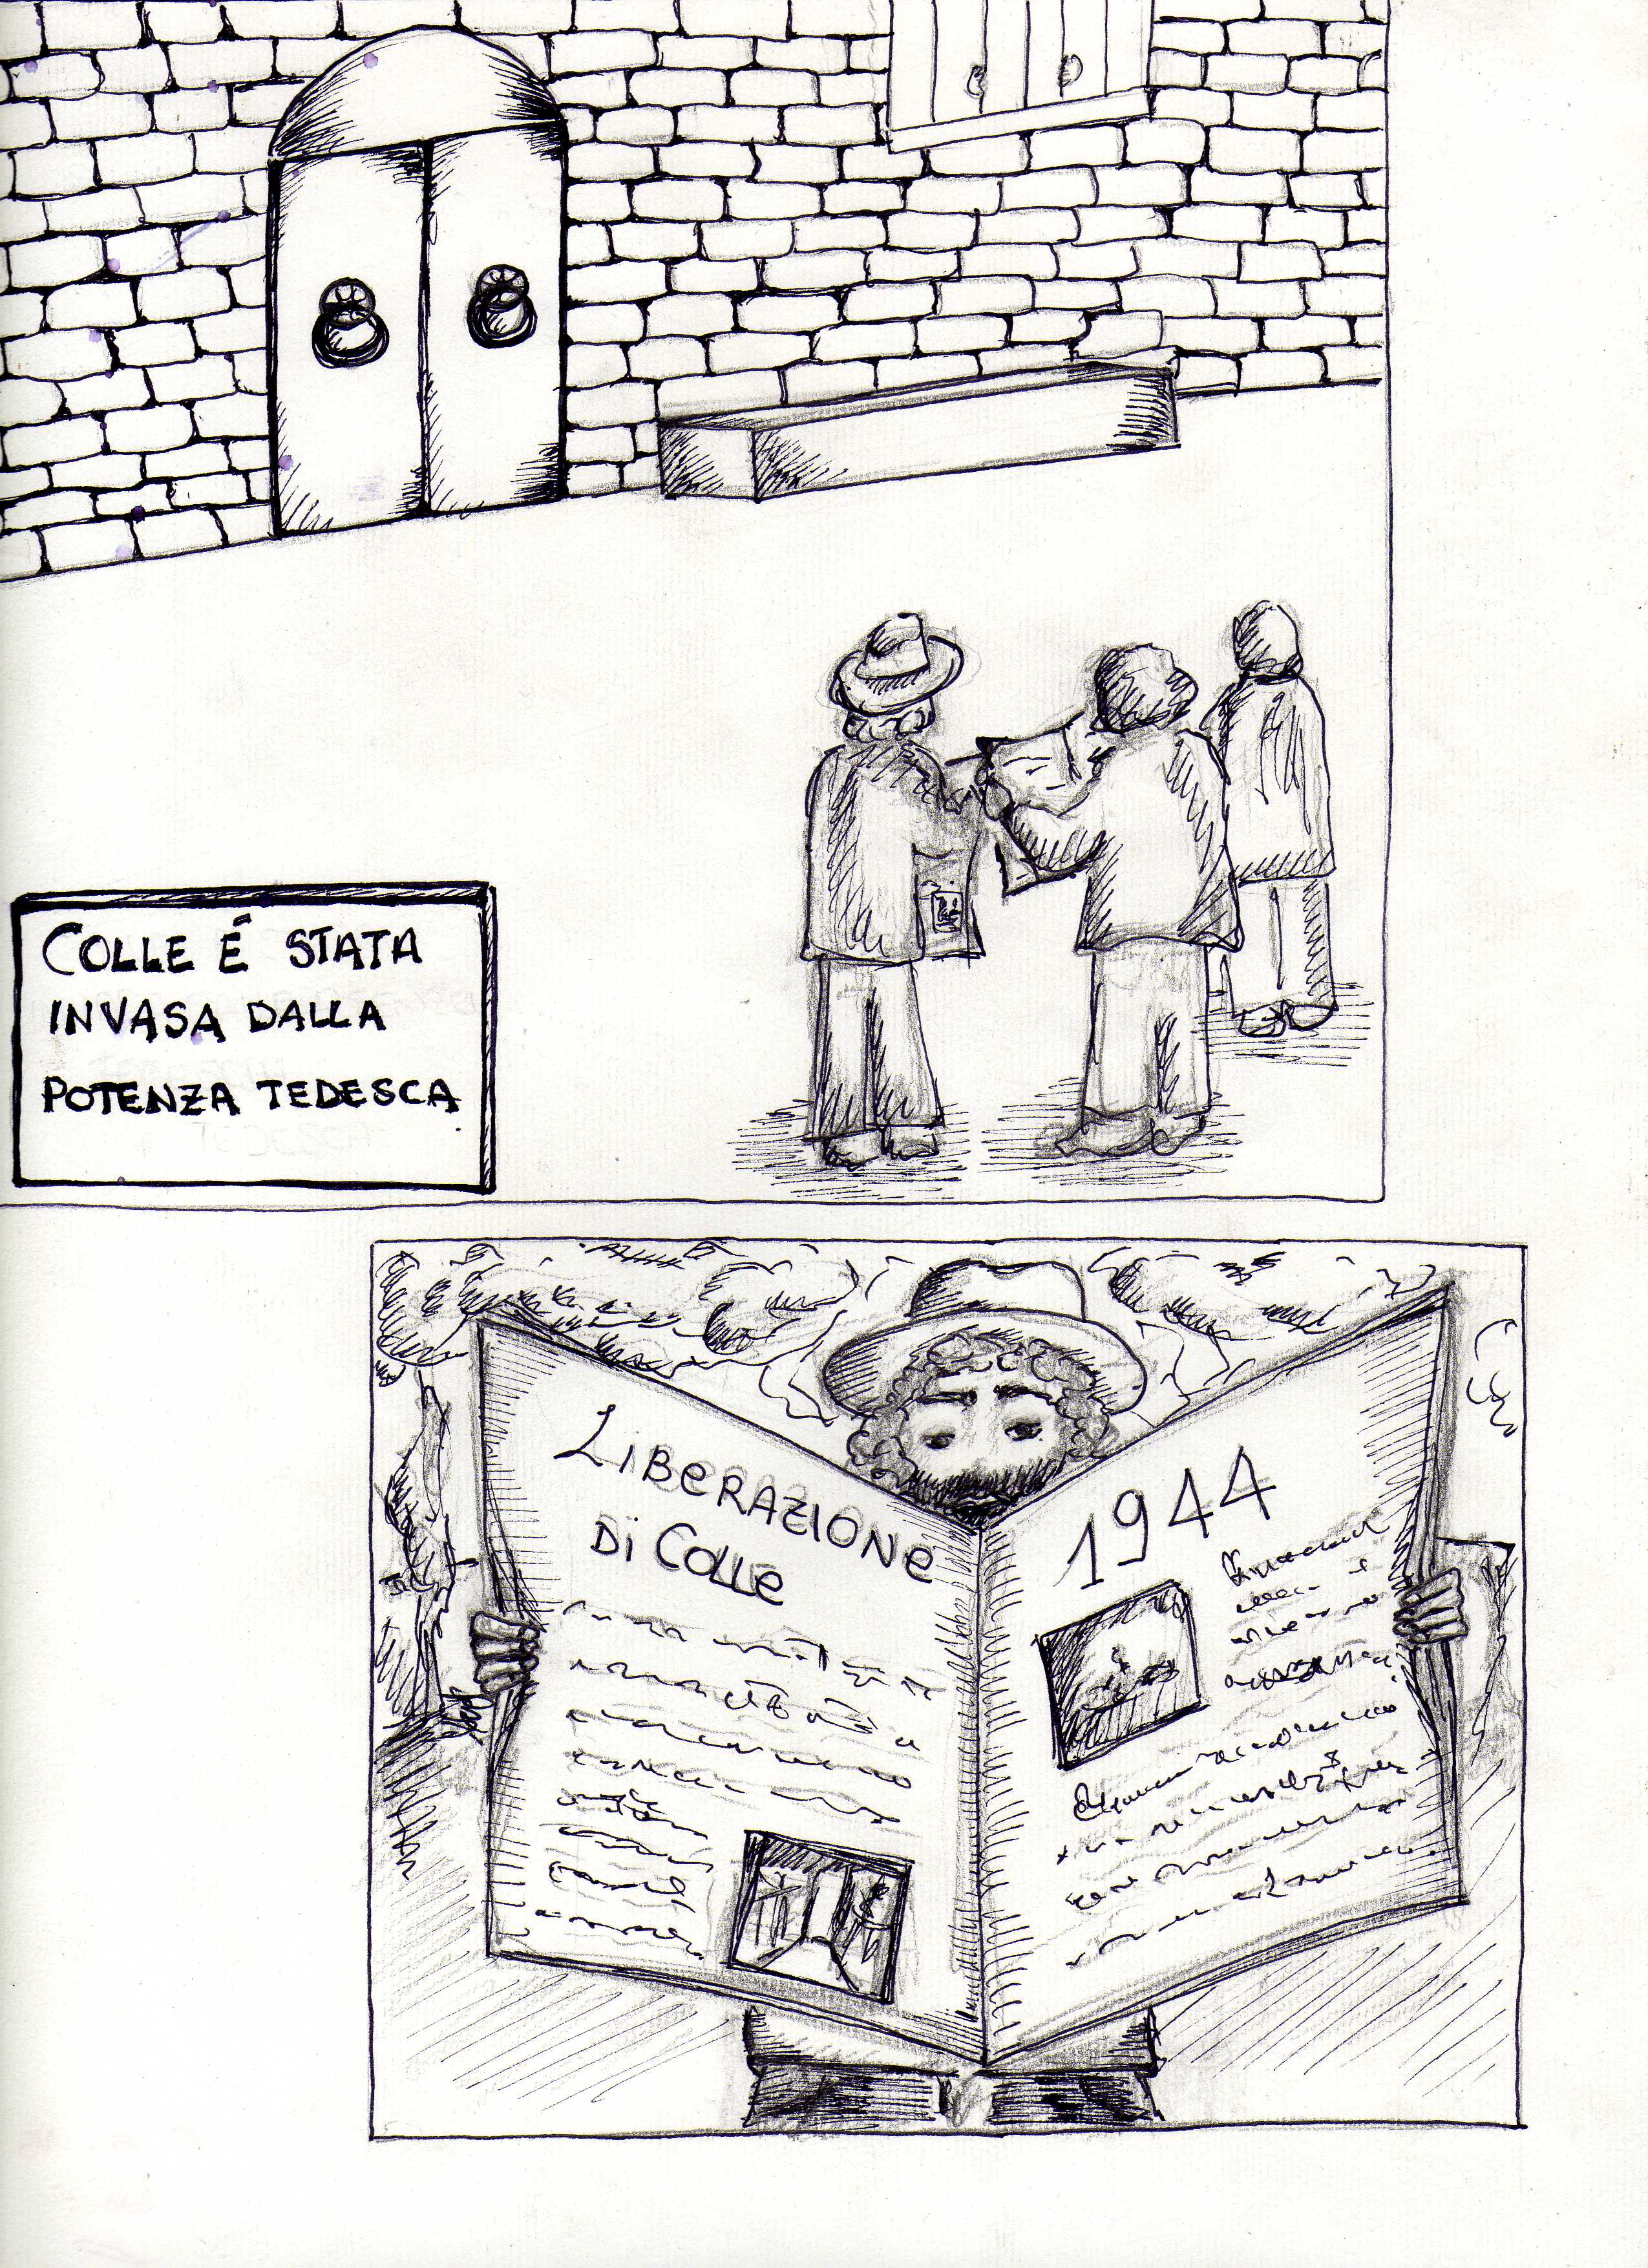 COLLE É STATA
INVASA DALLA
POTENZA TEDESCA
LIBERAZIONE
DI COLLE
1944